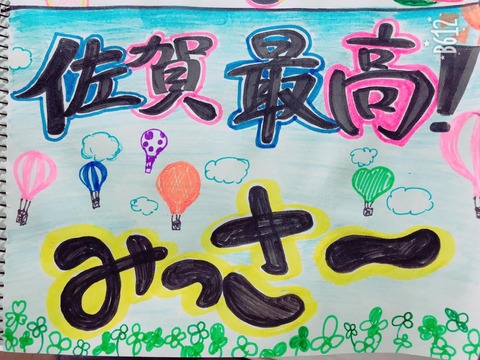 佐賀最高!
みっさー
B612